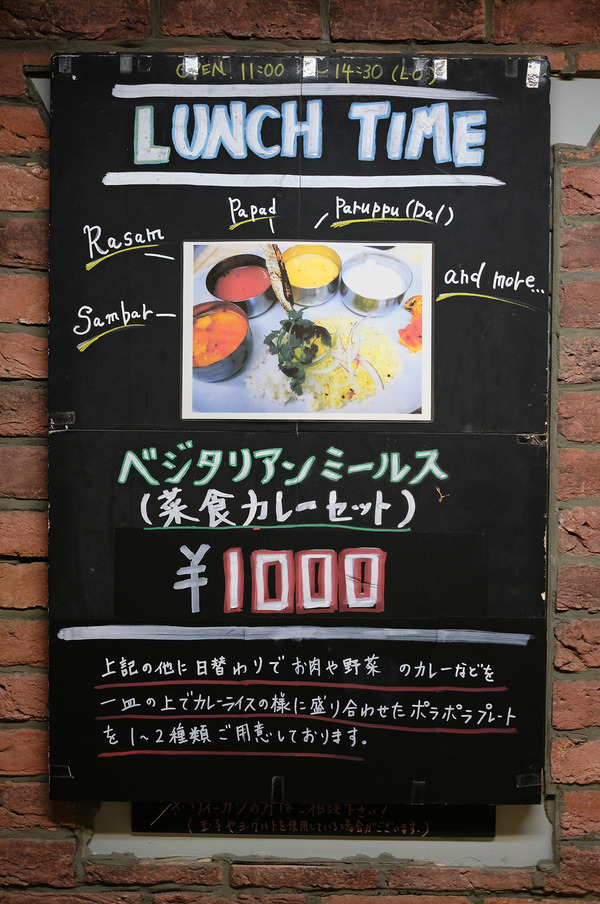 OPEN 11:00 ~ 14:30 (L.O)
LUNCH TIME
Papad
Paruppu (Dal)
Rasam
and more..
Sambar
ベジタリアンミールス
(菜食カレーセット)
¥1000
上記の他に日替わりでお肉や野菜 のカレーなどを
一皿の上でカレーライスの様に盛り合わせたポラポラプレート
を1~2種類ご用意しております。
(玉子やヨーグルトを使用している場合がございます。)